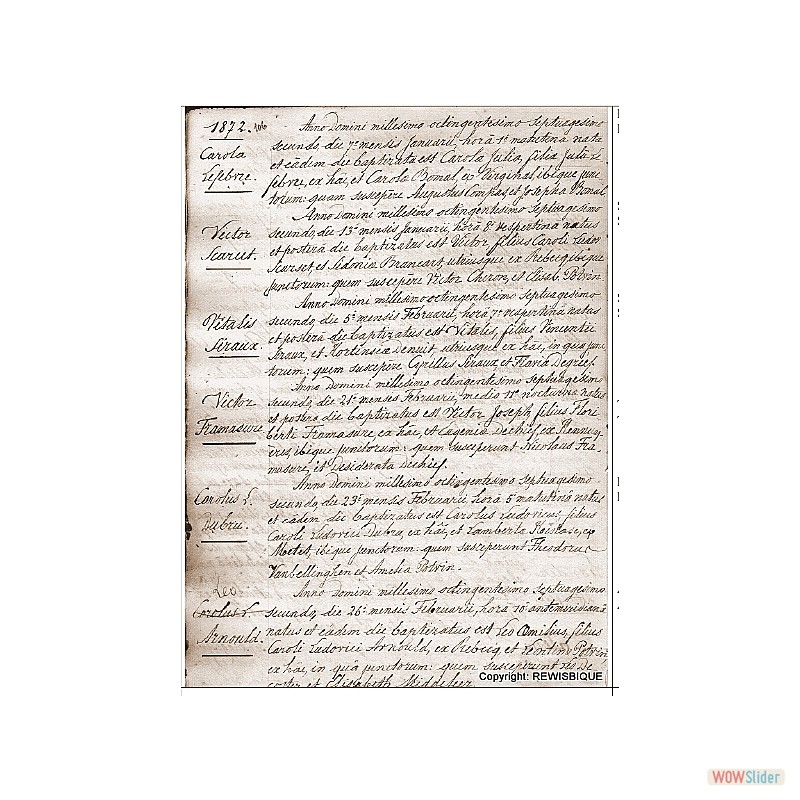 1872.
Carola
Lefebvre.
Anno Domini millesimo octingentesimo septuagesimo
secundo, die 7ª mensis Januarii, horâ 1ª matutinâ nata
et eâdem die baptizata est Carola Julia, filia Julii Le
febvre, ex hâc, et Carola Bomal, ex Virginal, ibique junc
torum: quam suscepêre Augustus et Josepha Bomal.
Victor
Scarcet.
Anno Domini millesimo octingentesimo septuagesimo
secundo, die 13ª mensis Januarii, horâ 8ª vespertinâ natus
et posterâ die baptizatus est Victor, filius Caroli Ludov.
Scarset, et Sidonia Brancart, utriusque ex Rebecq, ibique
junctorum: quem suscepêre Victor Chiron, et Elisab. Potvin
Vitalis
Siraux.
Anno Domini millesimo octingentesimo septuagesimo
secundo, die 5ª mensis Februarii, horâ 7ª vespertinâ natus
et posterâ die baptizatus est Vitalis, filius Vincentii
Siraux, et Hortinsiæ Denuit, utriusque ex hâc, in quâ junc
torum: quem suscepêre Cyrillus Siraux et Flavia Degrief.
Victor
Framasure
Anno Domini millesimo octingentesimo septuagesimo
secundo, die 21ª mensis Februarii, mediâ 11ª nocturnâ natus
et posterâ die baptizatus est Victor Joseph, filius Flori
berti Framasure, ex hâc, et Eugenia Dechief, ex Hennuy
ères, ibique junctorum: quem susceperunt Nicolaus Fra
masure, et Desiderata Dechief.
Carolus L.
Dubru.
Anno Domini millesimo octingentesimo septuagesimo
secundo, die 23ª mensis Februarii horâ 5ª matutinâ natus
et eâdem die baptizatus est Carolus Ludovicus, filius
Caroli Ludovici Dubru, ex hâc, et Lamberta ex
Mettet, ibique junctorum: quem susceperunt Theodorus
Vanbellinghen et Amelia Potvin.
Leo
Carolus L.
Arnould.
Anno Domini millesimo octingentesimo septuagesimo
secundo, die 26ª mensis Februarii, horâ 10ª antemeridianâ
natus et eâdem die baptizatus est Leo Æmilius, filius
Caroli Ludovici Arnould, ex Rebecq, et Potvin,
ex hâc, in quâ junctorum: quem susceperunt De
et Elisabeth Middeleer
Copyright: REWISBIQUE
WOWSlider